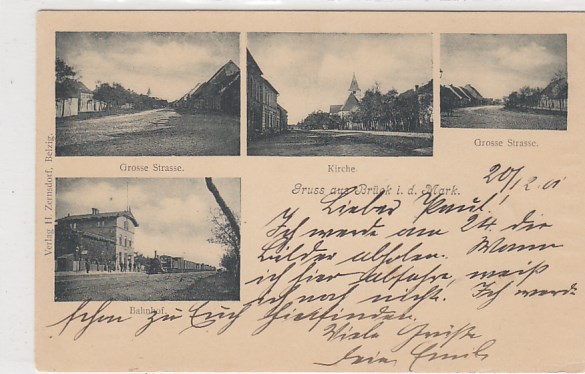 Verlag H. Zernsdorf, Belzig.
Grosse Strasse.
Kirche.
Grosse Strasse.
Bahnhof.
Gruss aus Brück i. d. Mark.
20/12.01
Lieber Paul!
Ich werde am 24. die
Bilder abholen. Wann
ich hier abfahre, weiß
ich noch nicht. Ich werde
schon zu Euch hinfinden.
Viele Grüße
Dein Emil